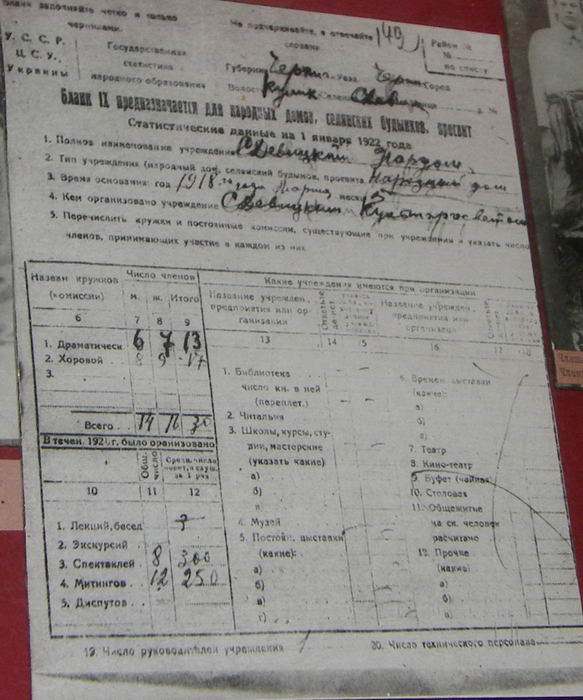 Бланк заполняйте четко и только чернилами.
Не подчеркивайте, а отвечайте словами
149
Район №
№
по списку
У. С. С. Р.
Ц. С. У.
Украины
Государственная
статистика
народного образования
Губерния Черниг. Уезд Черниг. Город
Волость Кулик. Селение
Бланк IX предназначается для народных домов, селянских будынков, просвит
Статистические данные на 1 января 1922 года
1. Полное наименование учреждения Нардом
2. Тип учреждения (народный дом, селянский будынок, просвита) Народный дом
3. Время основания: год 1918 го года Марта, месяц
4. Кем организовано учреждение
5. Перечислить кружки и постоянные комиссии, существующие при учреждении и указать число
членов, принимающих участие в каждом из них
Назван. кружков (комиссии)
Число членов
м. ж. Итого
6 7 8 9
1. Драматическ. 6 7 13
2. Хоровой 8 9 17
3.
Всего 14 16 30
В течен. 1921г. было организовано
Общ. число
10 11 12
1. Лекций, бесед
2. Экскурсий
3. Спектаклей 8 300
4. Митингов 12 250
5. Диспутов
Какие учреждения имеются при организации
Название учрежден., предприятия или организации
Название учрежден., предприятия или организации
13 14 15 16 17 18
1. Библиотека
число кн. в ней
(переплет.)
2. Читальня
3. Школы, курсы, студии, мастерские
(указать какие)
а)
б)
в)
4. Музей
5. Постоян. выставки
(какие):
а)
б)
в)
г)
6. Времен. выставки
(какие):
а)
б)
в)
7. Театр
8. Кино-театр
9. Буфет (чайная)
10. Столовая
11. Общежитие
на ск. человек
расчитано
12. Прочие
(какие)
а)
б)
в)
19. Число руководителей учреждения
20. Число технического персонала